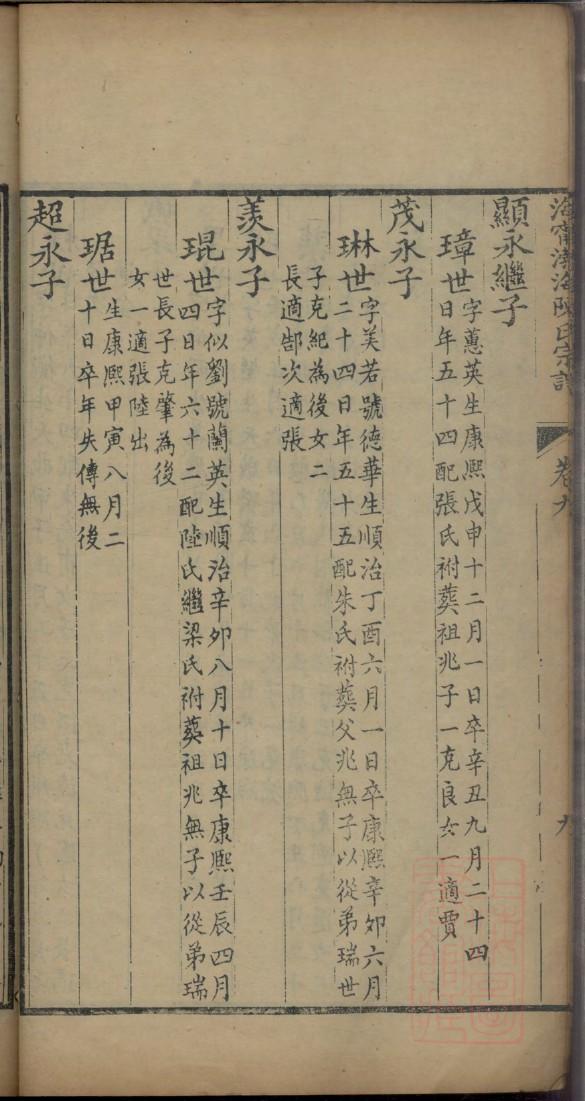 海寧渤海陳氏宗譜 卷九 九
顯永繼子
璋世字蕙英生康熙戊申十二月一日卒辛丑九月二十四
日年五十四配張氏祔葬祖兆子一克良女一適賈
茂永子
琳世字美若號德華生順治丁酉六月一日卒康熙辛卯六月
二十四日年五十五配朱氏祔葬父兆無子以從弟瑞世
子克紀為後女二
長適郜次適張
羨永子
琨世字似劉號蘭英生順治辛卯八月十日卒康熙壬辰四月
四日年六十二配陸氏繼梁氏祔葬祖兆無子以從弟瑞
世長子克肇為後
女一適張陸出
琚世生康熙甲寅八月二
十日卒年失傳無後
超永子